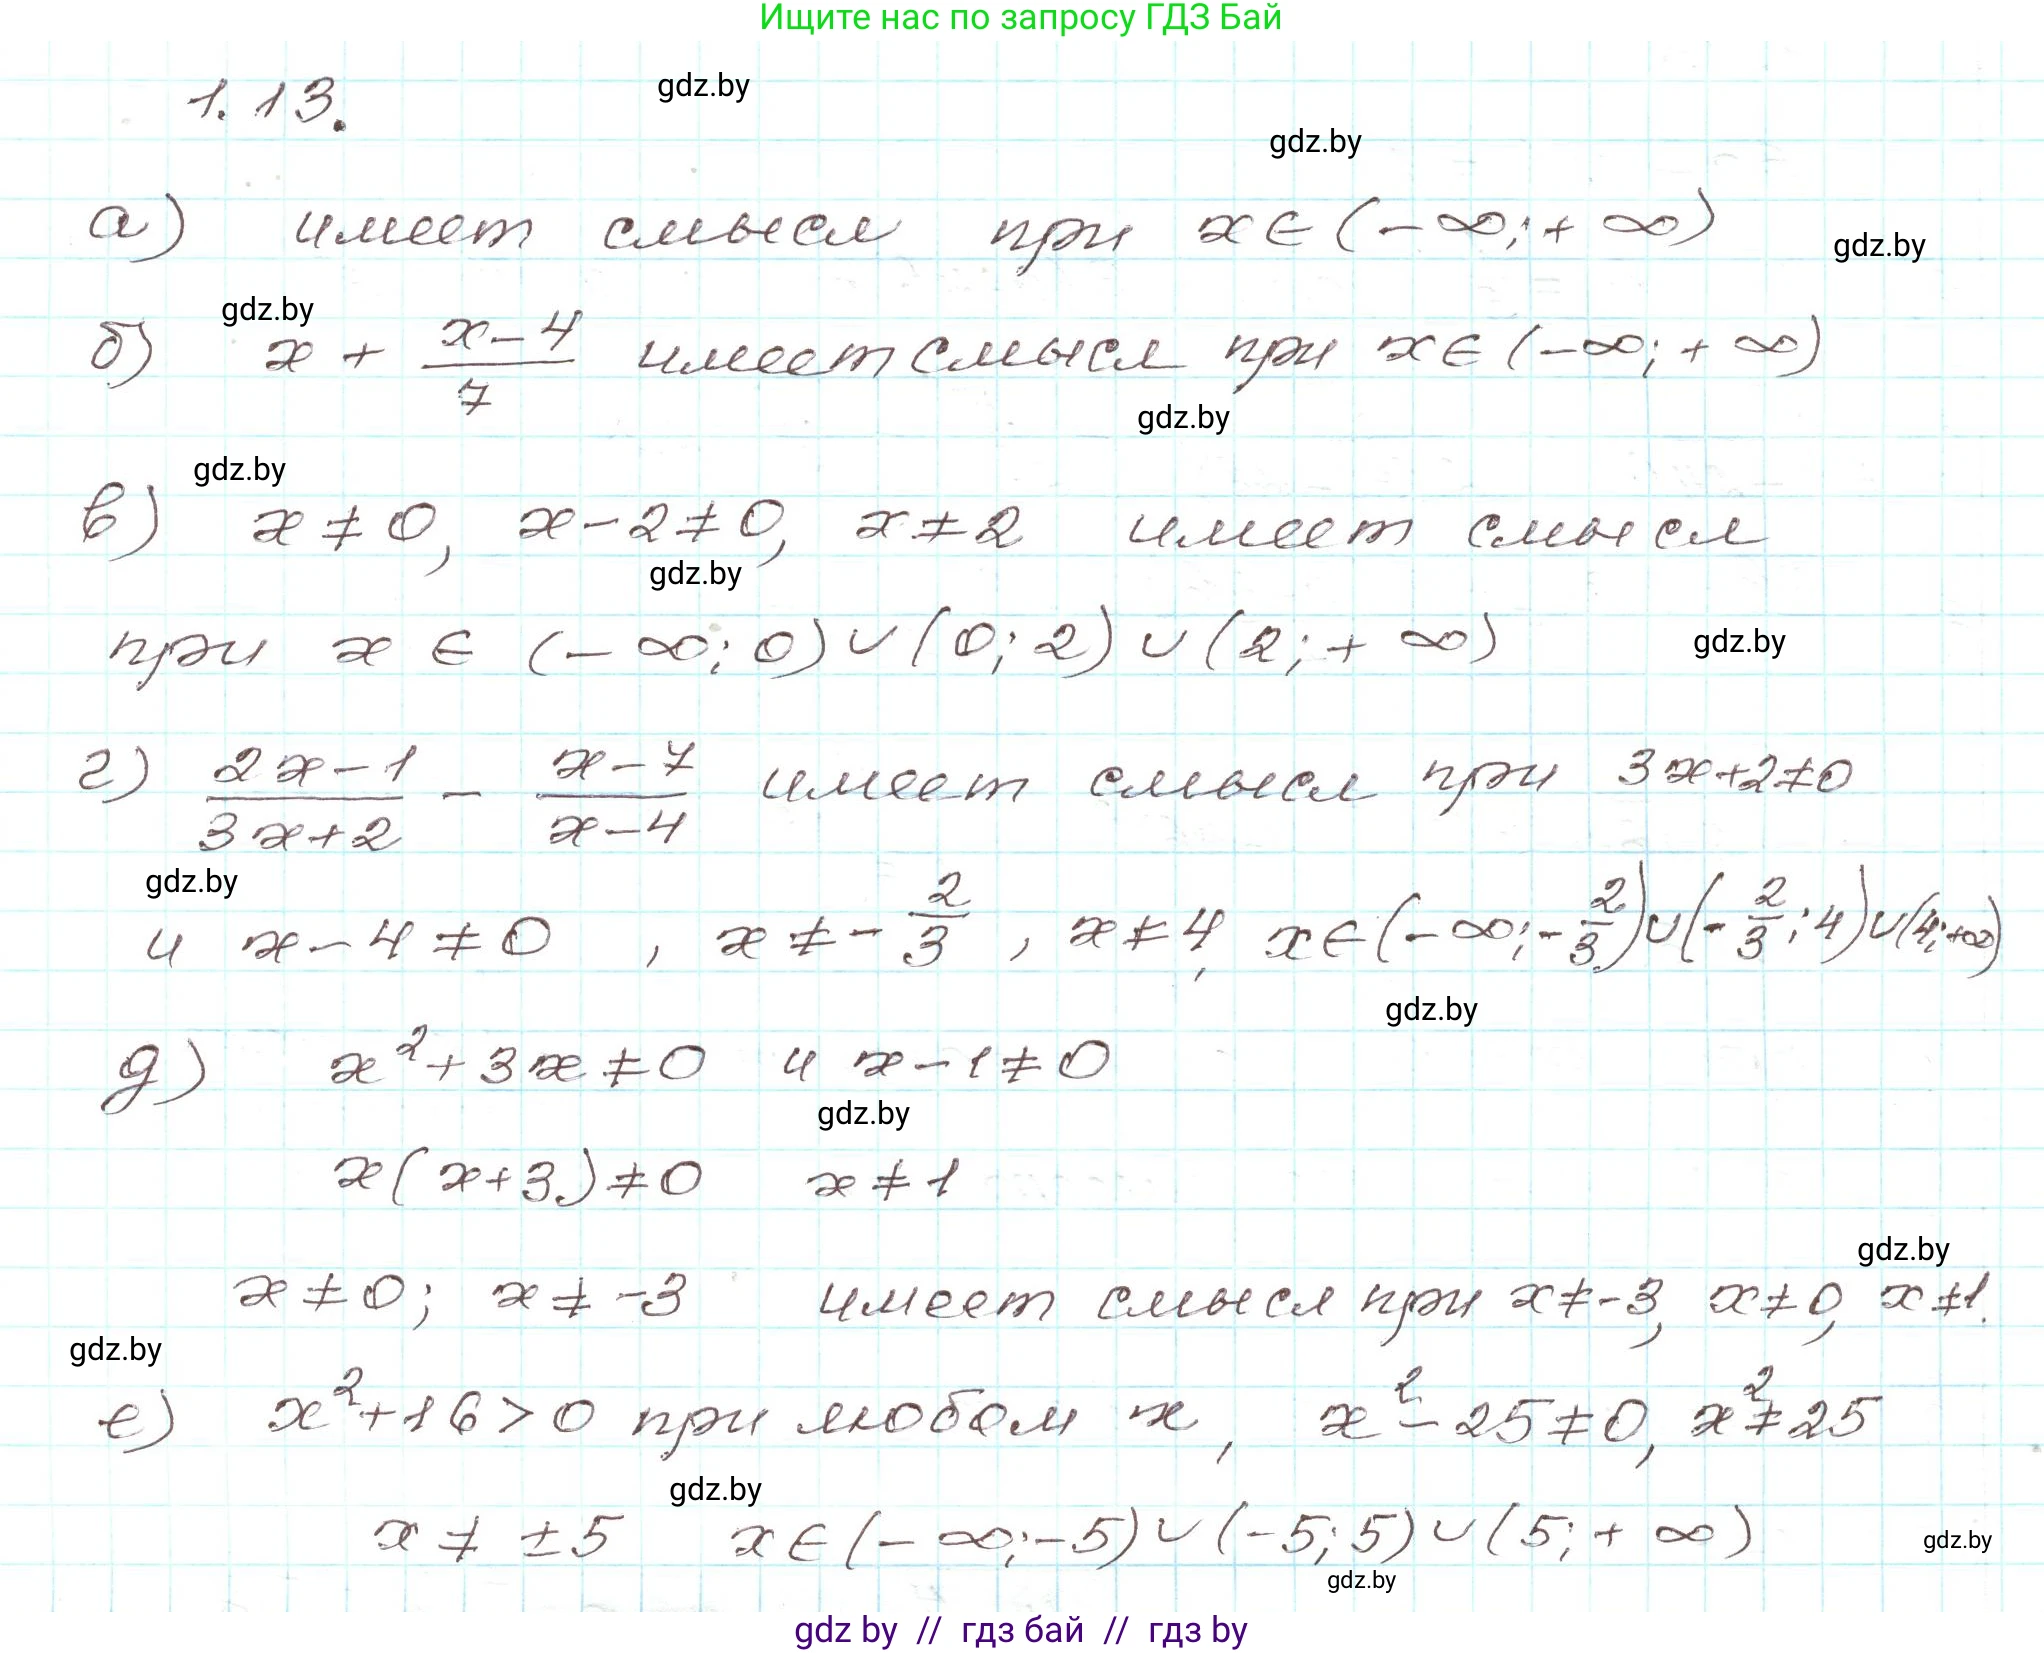 Ищите нас по запросу ГДЗ Бай
1.13.
gdz.by
gdz.by
а) имеет смысл при x∈(-∞;+∞)
gdz.by
gdz.by
б) x + \frac{x-4}{7} имеет смысл при x∈(-∞;+∞)
gdz.by
gdz.by
в) x≠0, x-2≠0, x≠2 имеет смысл
gdz.by
при x ∈ (-∞;0)∪(0;2)∪(2;+∞)
gdz.by
г) \frac{2x-1}{3x+2} - \frac{x-7}{x-4} имеет смысл при 3x+2≠0
gdz.by
и x-4≠0, x≠-\frac{2}{3}, x≠4, x∈(-∞;-\frac{2}{3})∪(-\frac{2}{3};4)∪(4;+∞)
gdz.by
д) x²+3x≠0 и x-1≠0
gdz.by
x(x+3)≠0 x≠1
gdz.by
x≠0; x≠-3 имеет смысл при x≠-3, x≠0, x≠1.
gdz.by
е) x²+16>0 при любом x, x²-25≠0, x²≠25
gdz.by
x≠±5 x∈(-∞;-5)∪(-5;5)∪(5;+∞)
gdz.by
gdz.by
gdz by // гдз бай // гдз by